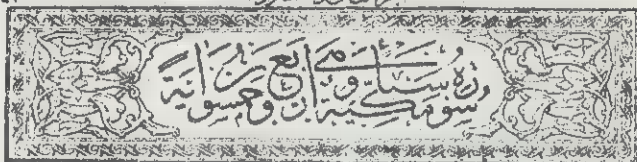 سُورَةُ سَبَأٍ مَكِّيَّةٌ وَهِيَ أَرْبَعٌ وَخَمْسُونَ آيَةً